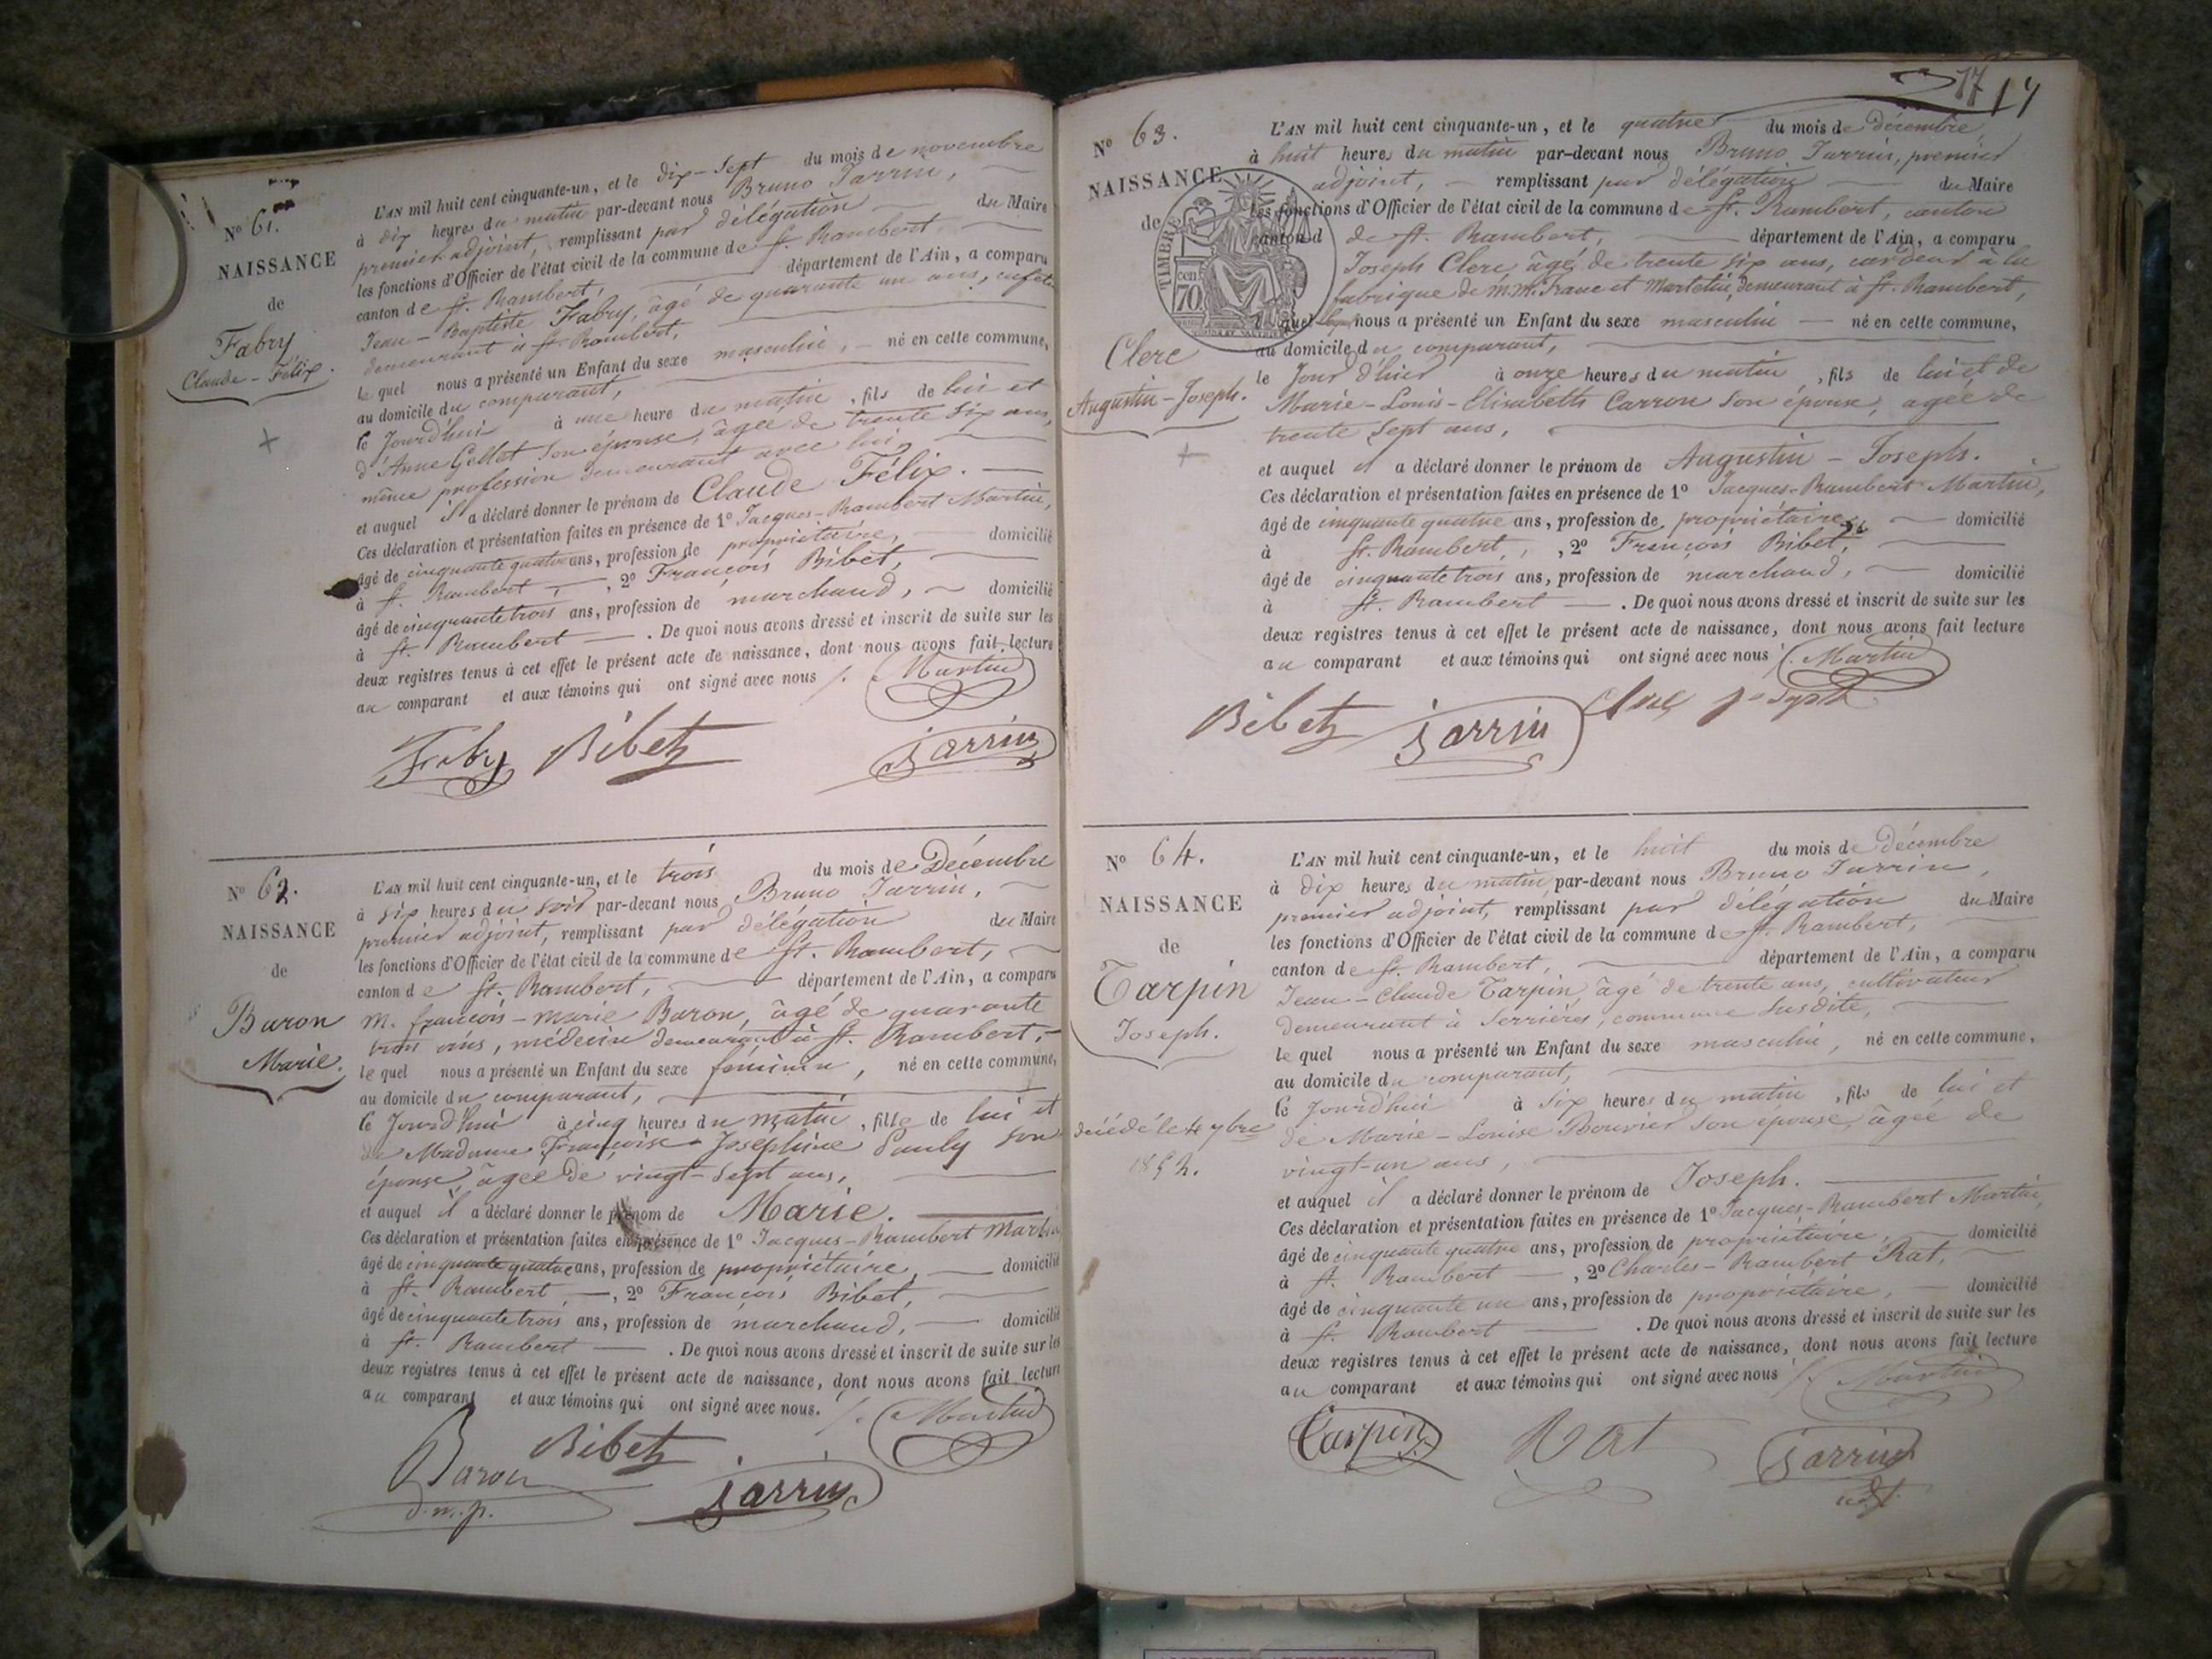 N° 61.
NAISSANCE
de
Fabry
Claude-Félix.
L'AN mil huit cent cinquante-un, et le dix-sept du mois de novembre
à dix heures du matin par-devant nous Bruno Jarrin,
premier adjoint, remplissant par délégation du Maire
les fonctions d'Officier de l'état civil de la commune de St. Rambert
canton de St. Rambert, département de l'Ain, a comparu
Jean-Baptiste Fabry, âgé de quarante un ans,
demeurant à St. Rambert,
lequel nous a présenté un Enfant du sexe masculin, né en cette commune,
au domicile du comparant,
le Jourd'hui à une heure du matin, fils de lui et
d'Anne Gellet son épouse, âgée de trente six ans,
même profession demeurant avec lui,
et auquel il a déclaré donner le prénom de Claude Félix.
Ces déclaration et présentation faites en présence de 1° Jacques-Rambert Martin,
âgé de cinquante quatre ans, profession de propriétaire, domicilié
à St. Rambert, 2° François Bibet,
âgé de cinquante trois ans, profession de marchand, domicilié
à St. Rambert. De quoi nous avons dressé et inscrit de suite sur les
deux registres tenus à cet effet le présent acte de naissance, dont nous avons fait lecture
au comparant et aux témoins qui ont signé avec nous /. Martin
Fabry Bibet Jarrin
N° 62.
NAISSANCE
de
Baron
Marie.
L'AN mil huit cent cinquante-un, et le trois du mois de Décembre
à six heures du soir par-devant nous Bruno Jarrin,
premier adjoint, remplissant par délégation du Maire
les fonctions d'Officier de l'état civil de la commune de St. Rambert,
canton de St. Rambert, département de l'Ain, a comparu
M. françois-marie Baron, âgé de quarante
trois ans, médecin demeurant à St. Rambert,
lequel nous a présenté un Enfant du sexe féminin, né en cette commune,
au domicile du comparant,
le Jourd'hui à cinq heures du matin, fille de lui et
de Madame Françoise-Joséphine Pauly son
épouse, âgée de vingt-sept ans,
et auquel il a déclaré donner le prénom de Marie.
Ces déclaration et présentation faites en présence de 1° Jacques-Rambert Martin
âgé de cinquante quatre ans, profession de propriétaire, domicilié
à St. Rambert, 2° François Bibet,
âgé de cinquante trois ans, profession de marchand, domicilié
à St. Rambert. De quoi nous avons dressé et inscrit de suite sur les
deux registres tenus à cet effet le présent acte de naissance, dont nous avons fait lecture
au comparant et aux témoins qui ont signé avec nous. /. Martin
Baron Bibet Jarrin
d.m.p.
17 17
N° 63.
NAISSANCE
de
TIMBRE
70 cen
Clerc
Augustin-Joseph.
L'AN mil huit cent cinquante-un, et le quatre du mois de décembre,
à huit heures du matin par-devant nous Bruno Jarrin, premier
adjoint, remplissant par délégation du Maire
les fonctions d'Officier de l'état civil de la commune de St. Rambert, canton
canton d de St. Rambert, département de l'Ain, a comparu
Joseph Clerc, âgé de trente six ans, cardeur à la
fabrique de m.m. Franc et Martelin, demeurant à St. Rambert,
lequel nous a présenté un Enfant du sexe masculin né en cette commune,
au domicile du comparant,
le Jour d'hier à onze heures du matin, fils de lui et de
Marie-Louis-Elisabeth Carron son épouse, âgée de
trente sept ans,
et auquel il a déclaré donner le prénom de Augustin-Joseph.
Ces déclaration et présentation faites en présence de 1° Jacques-Rambert Martin,
âgé de cinquante quatre ans, profession de propriétaire, domicilié
à St. Rambert, , 2° François Bibet,
âgé de cinquante trois ans, profession de marchand, domicilié
à St. Rambert. De quoi nous avons dressé et inscrit de suite sur les
deux registres tenus à cet effet le présent acte de naissance, dont nous avons fait lecture
au comparant et aux témoins qui ont signé avec nous /. Martin
Bibet Jarrin Clerc joseph
N° 64.
NAISSANCE
de
Tarpin
Joseph.
décédé le 4 7bre
1852.
L'AN mil huit cent cinquante-un, et le huit du mois de décembre
à dix heures du matin par-devant nous Bruno Jarrin,
premier adjoint, remplissant par délégation du Maire
les fonctions d'Officier de l'état civil de la commune de St. Rambert,
canton de St. Rambert, département de l'Ain, a comparu
Jean-Claude Tarpin, âgé de trente ans, cultivateur
demeurant à Serrières, commune susdite,
lequel nous a présenté un Enfant du sexe masculin, né en cette commune,
au domicile du comparant,
le Jourd'hui à six heures du matin, fils de lui et
de Marie-Louise Bouvier son épouse, âgée de
vingt-un ans,
et auquel il a déclaré donner le prénom de Joseph.
Ces déclaration et présentation faites en présence de 1° Jacques-Rambert Martin,
âgé de cinquante quatre ans, profession de propriétaire, domicilié
à St. Rambert, 2° Charles-Rambert Rat,
âgé de cinquante un ans, profession de propriétaire, domicilié
à St. Rambert. De quoi nous avons dressé et inscrit de suite sur les
deux registres tenus à cet effet le présent acte de naissance, dont nous avons fait lecture
au comparant et aux témoins qui ont signé avec nous /. Martin
Tarpin Rat Jarrin
adj.